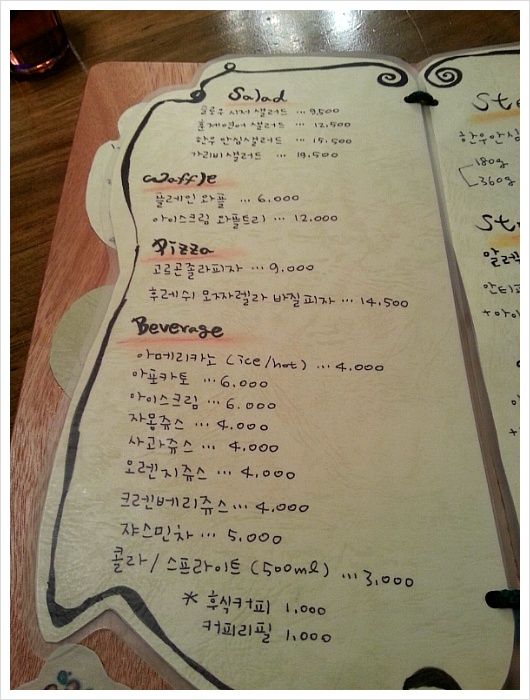 Salad
슬로우 시저 샐러드 ... 9,500
훈제연어 샐러드 ... 12,500
한우 안심샐러드 ... 15,500
가리비샐러드 ... 19,500
waffle
플레인 와플 ... 6.000
아이스크림 와플트리 ... 12.000
Pizza
고르곤졸라피자 ... 9.000
후레쉬 모짜렐라 바질피자 ... 14,500
Beverage
아메리카노 (ice/hot) ... 4.000
아포카토 ... 6.000
아이스크림 ... 6.000
자몽쥬스 ... 4.000
사과쥬스 ... 4.000
오렌지쥬스 ... 4,000
크렌베리쥬스 ... 4,000
쟈스민차 ... 5,000
콜라/스프라이트 (500ml) ... 3,000
* 후식커피 1,000
커피리필 1,000
한우안심
180g
360g